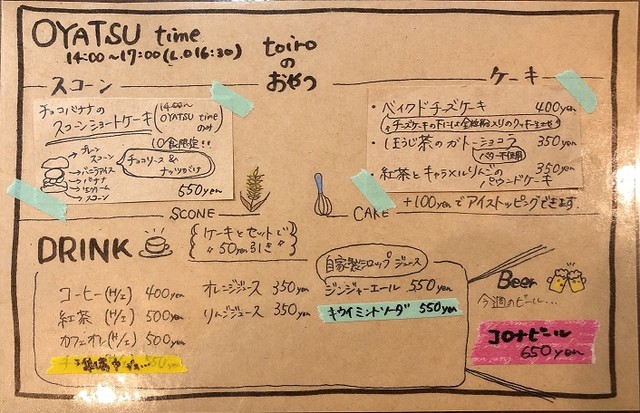 OYATSU time
14:00〜17:00(L.O16:30)
toiro
の
おやつ
スコーン
チョコバナナの
スコーンショートケーキ
14:00〜
OYATSU time
のみ
10食限定!!
プレーン
スコーン
バニラアイス
バナナ
生クリーム
スコーン
チョコソース &
ナッツがけ
550yen
SCONE
ケーキ
・ベイクドチーズケーキ 400yen
チーズケーキの下には全粒粉入りのクッキー生地を
・ほうじ茶のガトーショコラ 350yen
バター不使用
・紅茶とキャラメルりんごの 350yen
パウンドケーキ
+100yenでアイストッピングできます
CAKE
DRINK
ケーキとセットで
"50yen引き"
コーヒー(H/I) 400yen
紅茶 (H/I) 500yen
カフェオレ(H/I) 500yen
550yen
オレンジジュース 350yen
りんごジュース 350yen
自家製シロップ ジュース
ジンジャーエール 550yen
キウイミントソーダ 550yen
Beer
今週のビール...
コロナビール
650yen